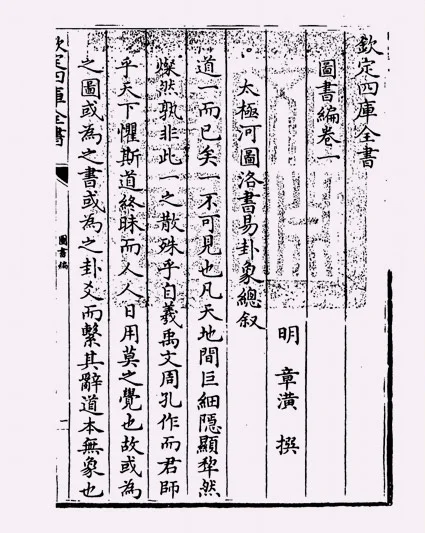 欽定四庫全書
圖書編卷一
明 章潢 撰
太極河圖洛書易卦象總叙
道一而已矣一不可見也凡天地間巨細隱顯犂然
燦然孰非此一之散殊乎自羲禹文周孔作而君師
乎天下懼斯道終昧而人人日用莫之覺也故或為
之圖或為之書或為之卦爻而繫其辭道本無象也
欽定四庫全書
圖書編
一